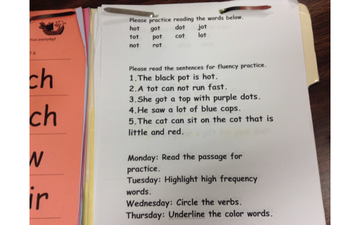 ch
ch
w
ir
Please practice reading the words below.
hot got dot jot
tot pot cot lot
not rot
Please read the sentences for fluency practice.
1.The black pot is hot.
2.A tot can not run fast.
3.She got a top with purple dots.
4.He saw a lot of blue caps.
5.The cat can sit on the cot that is
little and red.
Monday: Read the passage for
practice.
Tuesday: Highlight high frequency
words.
Wednesday: Circle the verbs.
Thursday: Underline the color words.